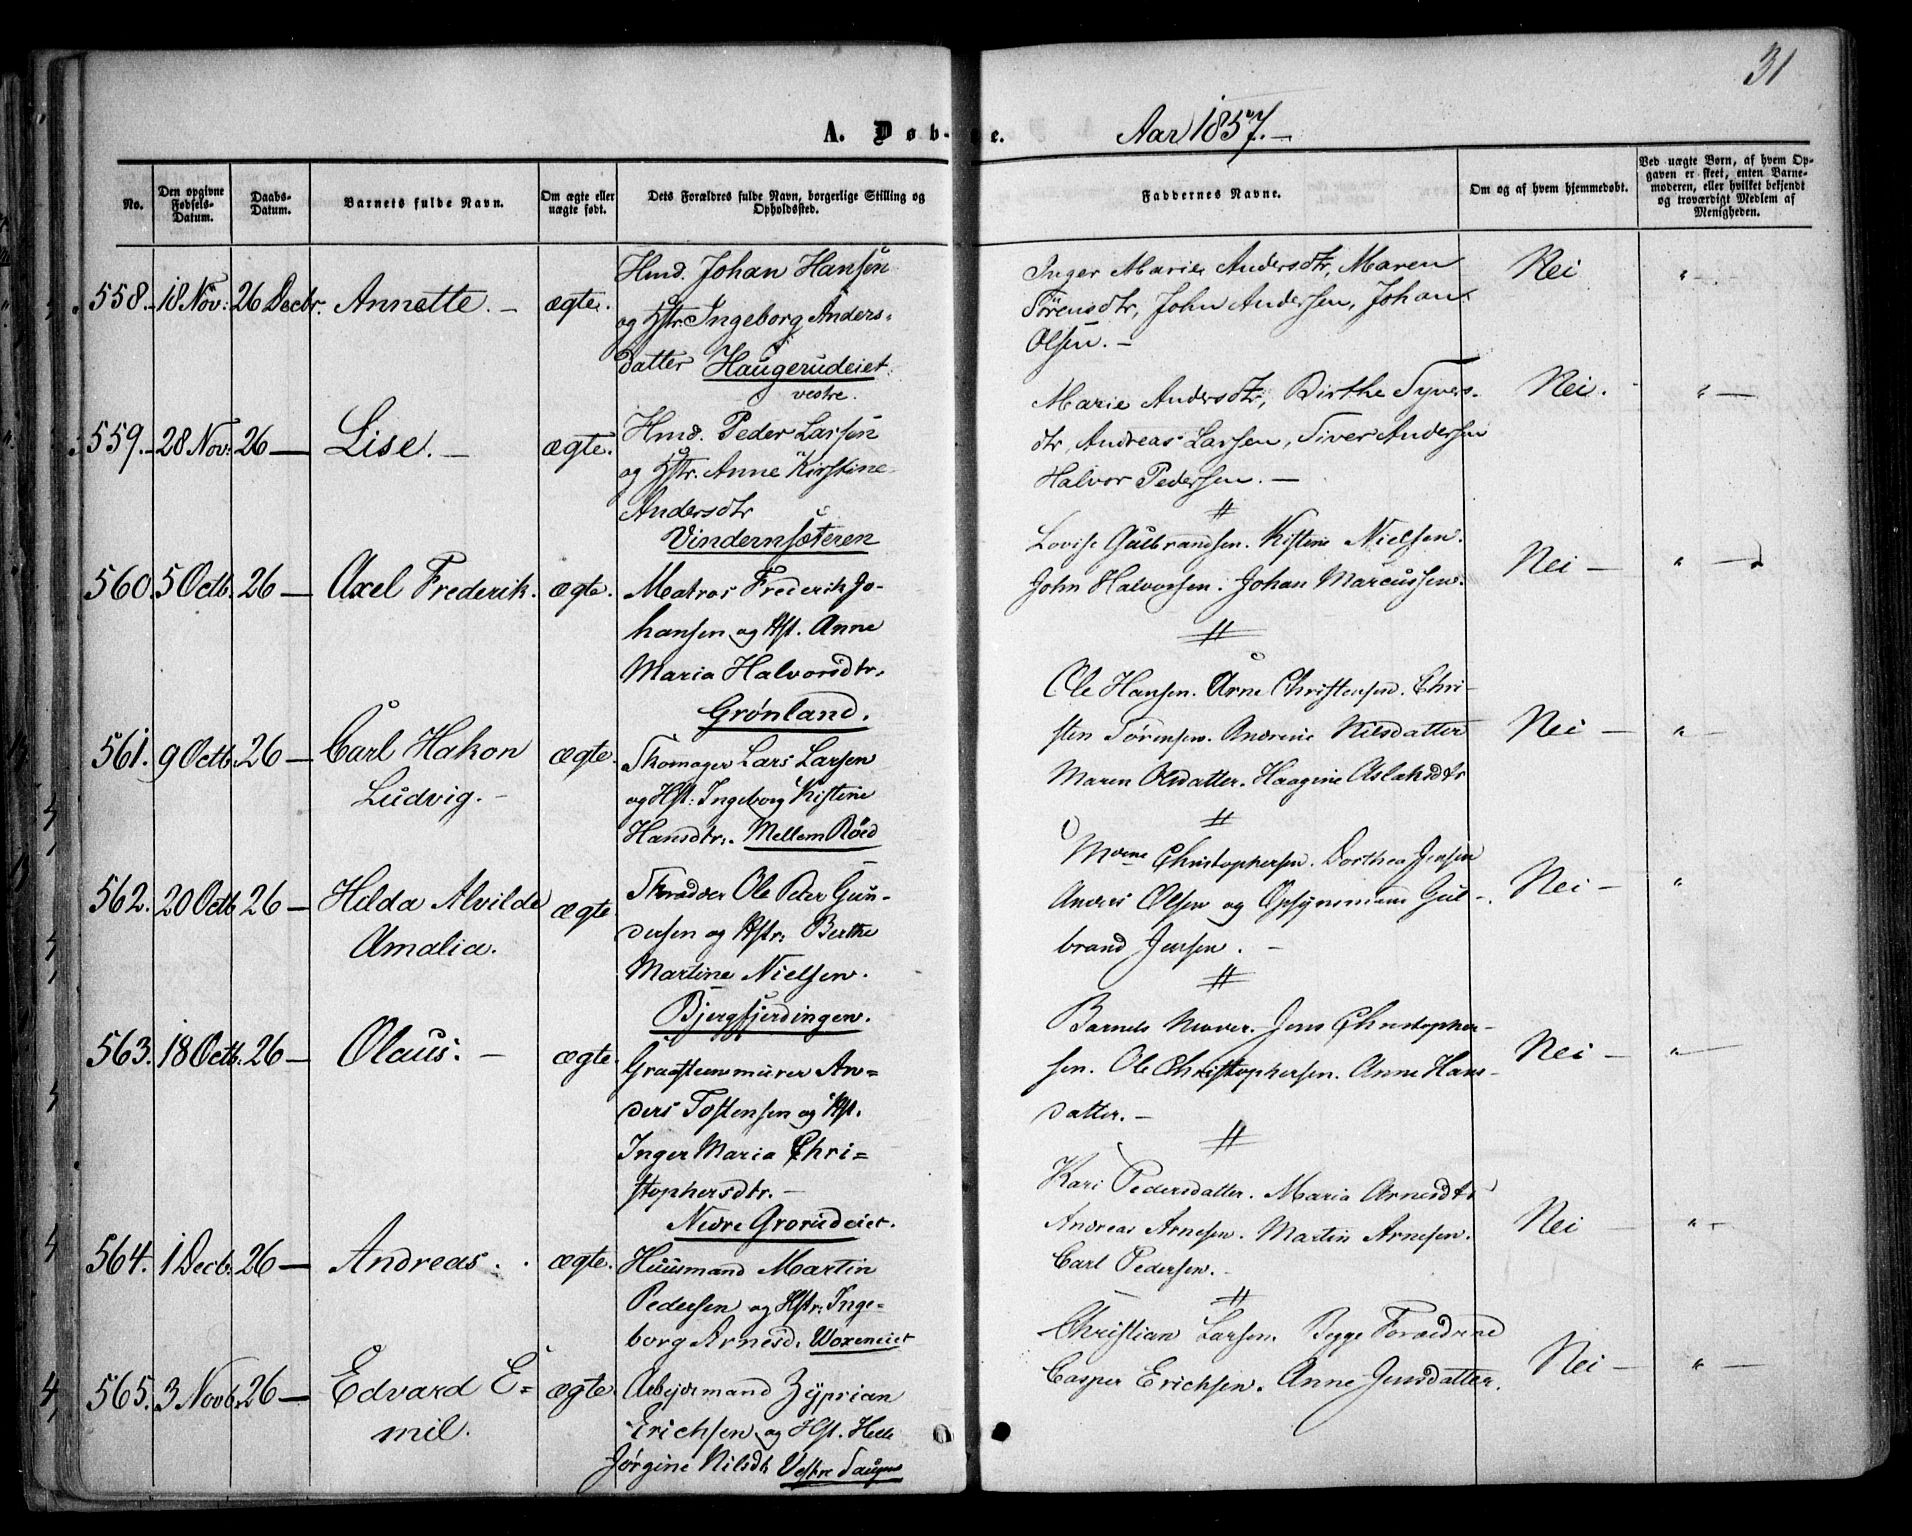 31
A. Døb-	e.	Aar 1857.-
No.	Den opgivne Fødsels-Datum.	Daabs-Datum.	Barnets fulde Navn.	Om ægte eller uægte født.	Dets Forældres fulde Navn, borgerlige Stilling og Opholdssted.	Faddernes Navne.	Om og af hvem hjemmedøbt.	Ved uægte Børn, af hvem Opgaven er skeet, enten Barnemoderen, eller hvilket bekjendt og troværdigt Medlem af Menigheden.
558.	18 Nov:	26 Decbr.	Annette. -	ægte.	Hmd. Johan Hansen
og Hstr. Ingeborg Anders-
datter Haugerudeiet
vestre.
Inger Marie Andersdtr, Maren
Sörensdtr, John Andersen, Johan
Olsen. -
Nei	"-
559.-	28 Nov:	26 —	Lise. -	ægte.	Hmd. Peder Larsen
og Hstr. Anne Kirstine
Andersdtr
Vindernsæteren
Marie Andersdtr, Birthe Syvers-
dtr, Andreas Larsen, Siver Andersen
Halvor Pedersen. -
Nei.	" —
560.	5 Octb.	26 —	Axel Frederik.	ægte.	Matros Frederik Jo-
hansen og Hst. Anne
Maria Halvorsdtr.
Grønland.
Lovise Gulbrandsen. Kistine Nielsen.
John Halvorsen. Johan Marcussen.
Nei —	" —
561.	9 Octb.	26 —	Carl Hakon
Ludvig. -
ægte.	Skomager Lars Larsen
og Hst: Ingeborg Kistine
Hansdtr. Mellem Röed
Ole Hansen. Arne Christensen. Chri-
sten Sørensen. Andrene Nilsdatter
Maren Olsdatter. Haagine Aslaksdtr
Nei —	" -
562.	20 Octb	26 —	Helda Alvilde
Amalia.
ægte	Skrædder Ole Peder Gun-
dersen og Hstr: Berthe
Martine Nielsen.
Bjergfjerdingen.
Christophersen. Dorthea Jensen
Andreas Olsen og Opsynsmand Gul-
brand Jensen. -
Nei —	"
563.	18 Octb.	26 —	Olaus. -	ægte.	Graasteensmurer An-
ders Tostensen og Hst.
Inger Maria Chri-
stophersdtr. -
Nedre Gorudeiet.
Barnets Moder. Jens Christopher-
sen. Ole Christophersen. Anne Hans-
datter. -
Nei —	" —
564.	1 Decb.	26 —	Andreas.	ægte.	Huusmand Martin
Pedersen og Hstr: Inge-
borg Arnesd. Woxeneiet
Kari Pedersdatter. Maria Arnesdtr
Andreas Arnesen. Martin Arnesen.
Carl Pedersen. -
Nei —	" -
565.	3 Novb.	26 —	Edvard E-
mil.
ægte.	Arbejdsmand Zyprian
Erichsen og Hst. Helle
Jørgine Nilsdt. Vestre
Christian Larsen. Begge Forældrene
Casper Erichsen. Anne Jensdatter.
Nei —	" —